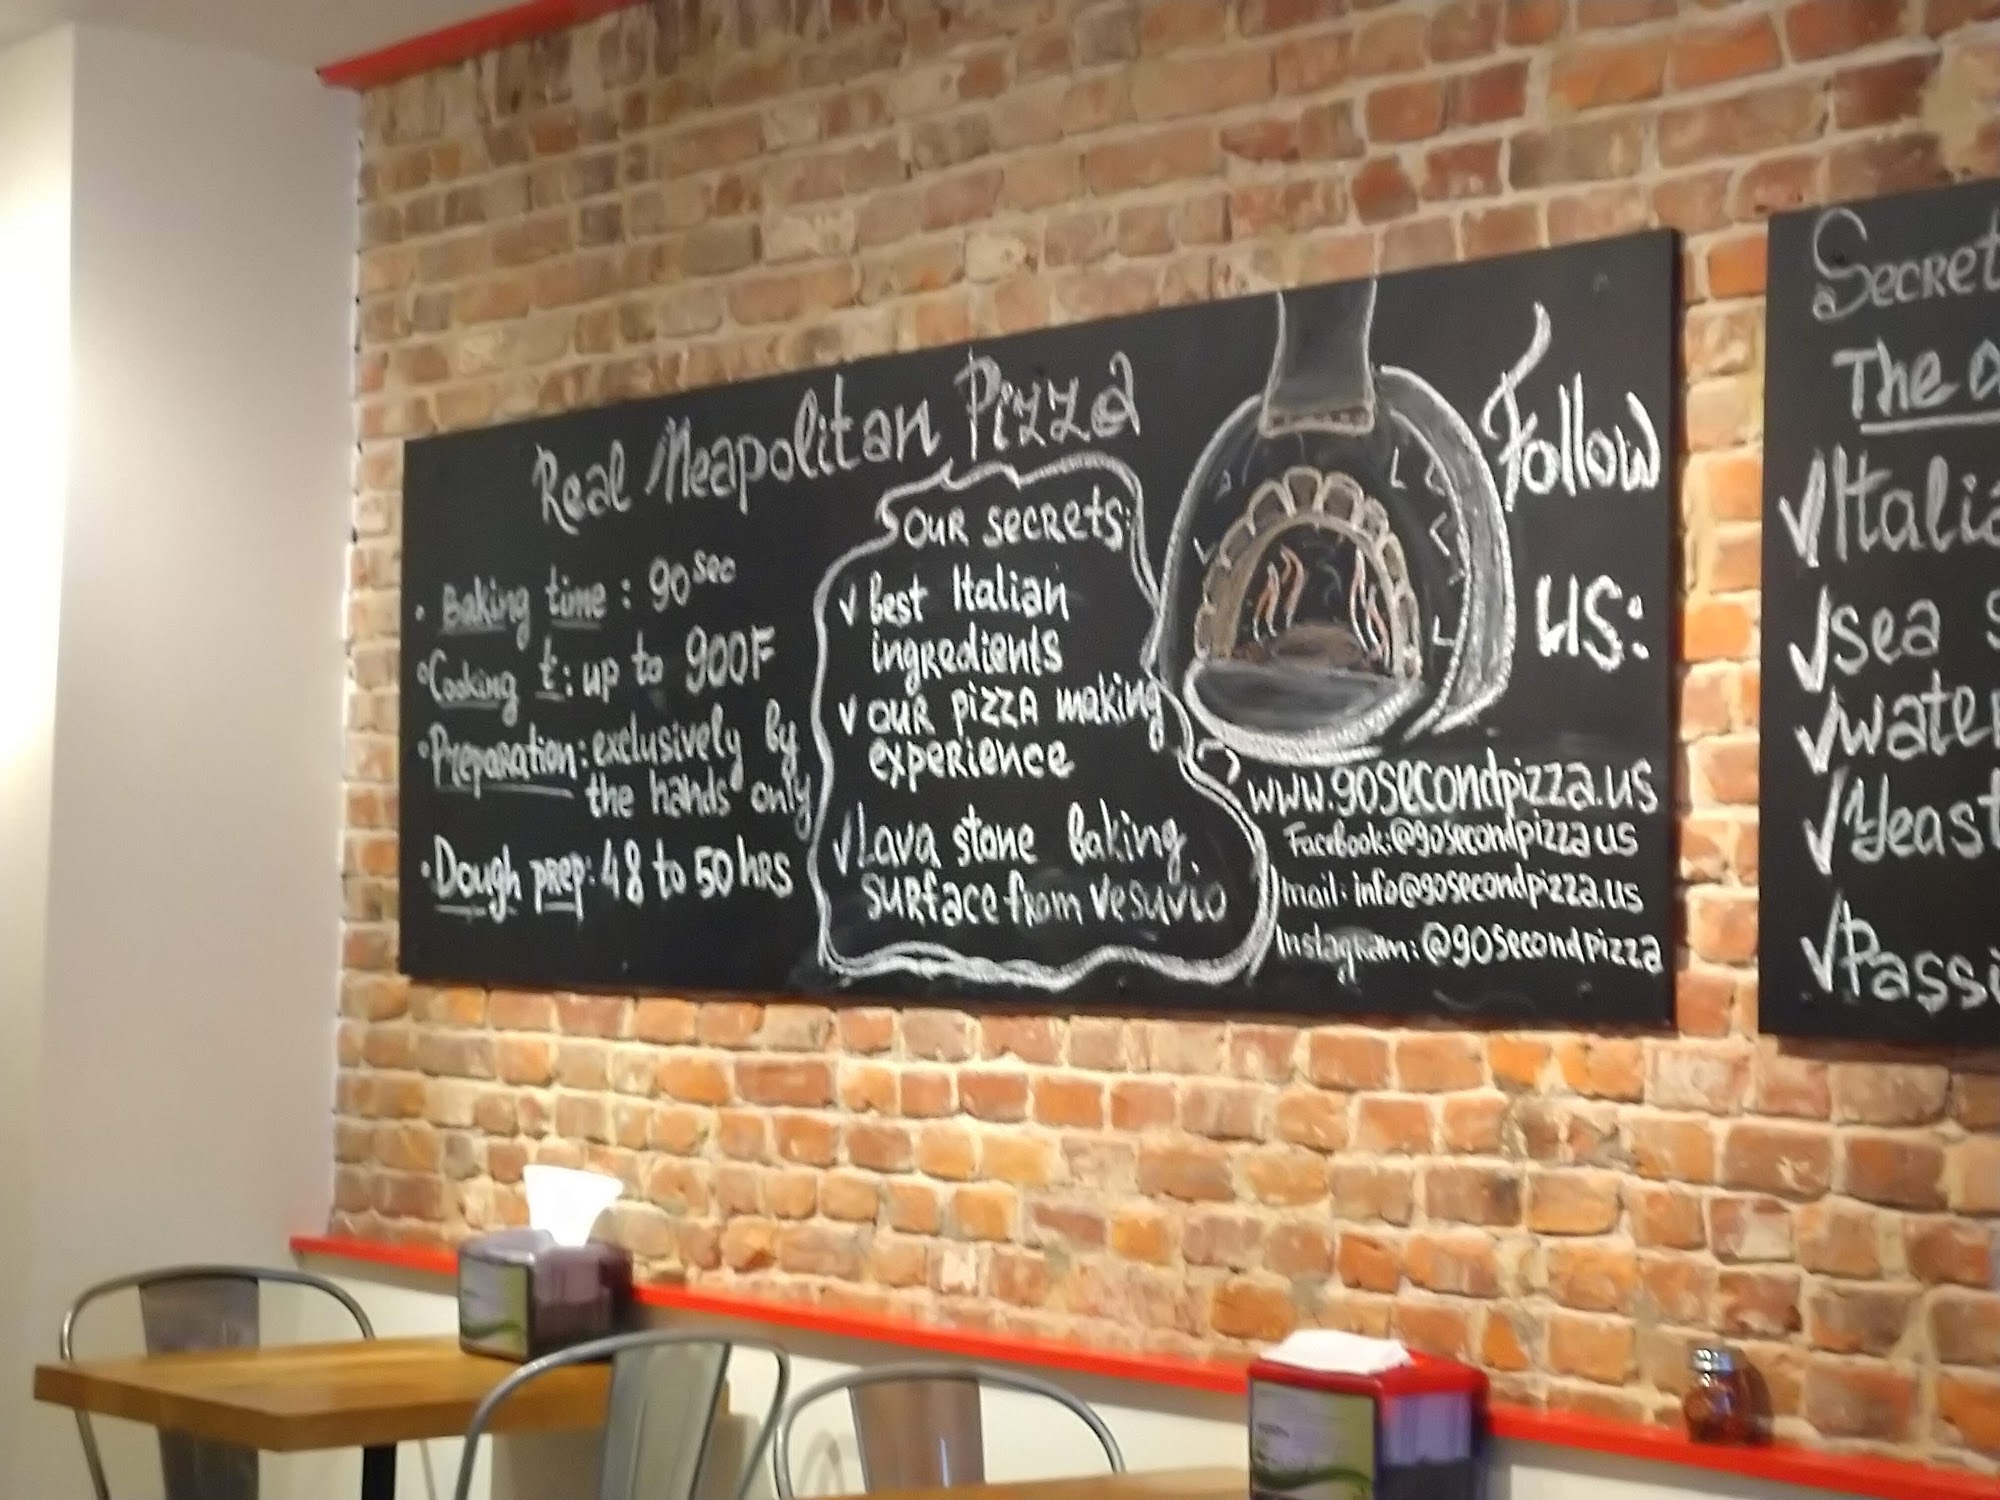 Real Neapolitan Pizza
• Baking time: 90 sec
• Cooking t: up to 900F
• Preparation: exclusively by
the hands only
• Dough prep: 48 to 50 hrs
OUR SECRETS:
✓ Best Italian
ingredients
✓ OUR PIZZA making
experience
✓ Lava stone baking
surface from Vesuvio
Follow
us:
www.90secondpizza.us
Facebook: @90secondpizzaus
mail: info@90secondpizza.us
Instagram: @90secondpizza
Secret
The
✓ Italia
✓ sea
✓ water
✓ Yeast
✓ Passi